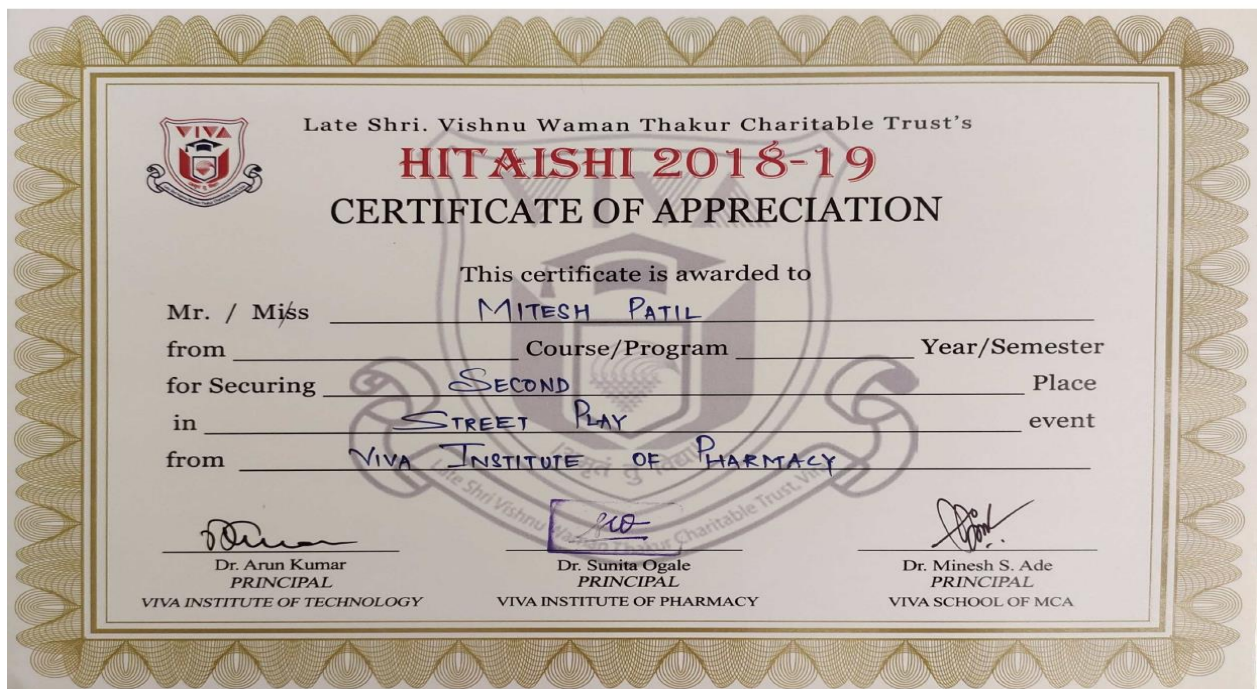 VIVA
Late Shri. Vishnu Waman Thakur Charitable Trust's
HITAISHI 2018-19
CERTIFICATE OF APPRECIATION
VIVA
This certificate is awarded to
Mr. / Miss MITESH PATIL
from Course/Program Year/Semester
for Securing SECOND Place
in STREET PLAY event
from VIVA INSTITUTE OF PHARMACY
Late Shri Vishnu Waman Thakur Charitable Trust,
Dr. Arun Kumar Dr. Sunita Ogale Dr. Minesh S. Ade
PRINCIPAL PRINCIPAL PRINCIPAL
VIVA INSTITUTE OF TECHNOLOGY VIVA INSTITUTE OF PHARMACY VIVA SCHOOL OF MCA